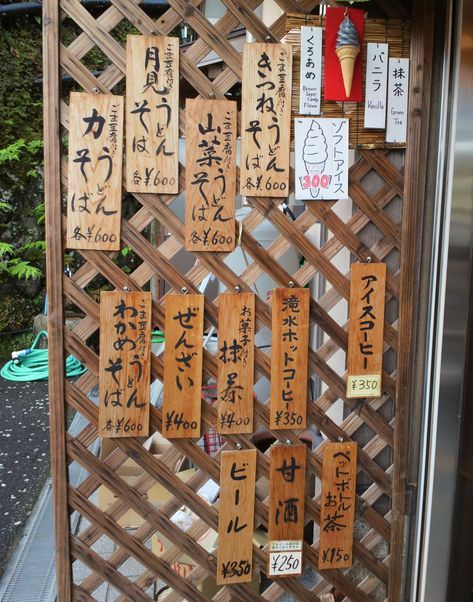 ごま豆腐付き
力うどん
そば
各¥600
ごま豆腐付き
月見うどん
そば
各¥600
ごま豆腐付き
山菜うどん
そば
各¥600
ごま豆腐付き
きつねうどん
そば
各¥600
くろあめ
Brown
Sugar
Candy
Flavor
バニラ
Vanilla
抹茶
Green
Tea
ソフトアイス
300
ごま豆腐付き
わかめうどん
そば
各¥600
ぜんざい
¥400
お菓子付き
抹茶
¥400
滝水ホットコーヒー
¥350
アイスコーヒー
¥350
ビール
¥350
甘酒
¥250
ペットボトル
お茶
¥150